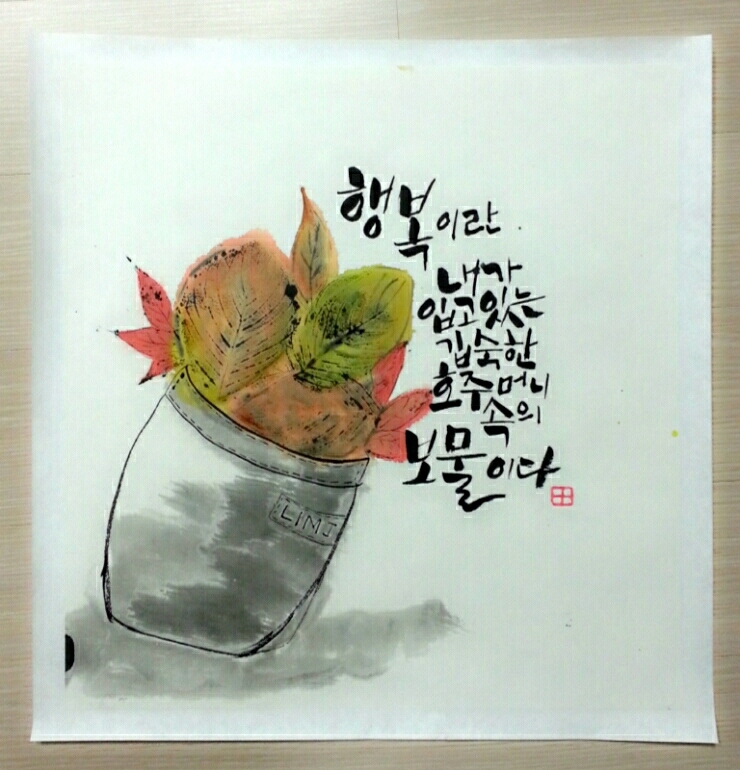 행복이란
내가
입고있는
깁숙한
호주머니
속의
보물이다
LIMJ